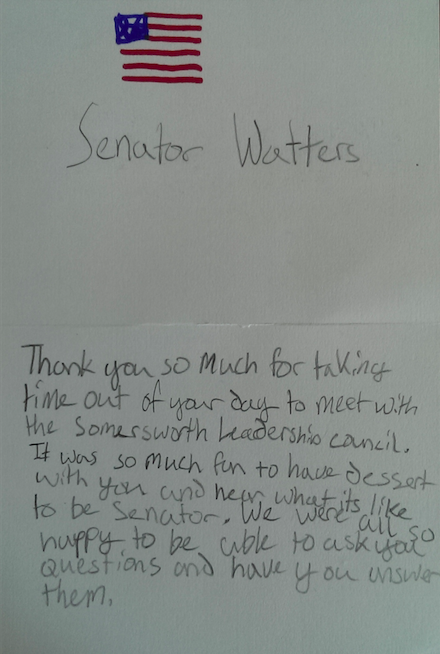 Senator Watters
Thank you so much for taking
time out of your day to meet with
the Somersworth Leadership council.
It was so much fun to have dessert
with you and hear what its like
to be Senator. We were all so
happy to be able to ask you
questions and have you answer
them.